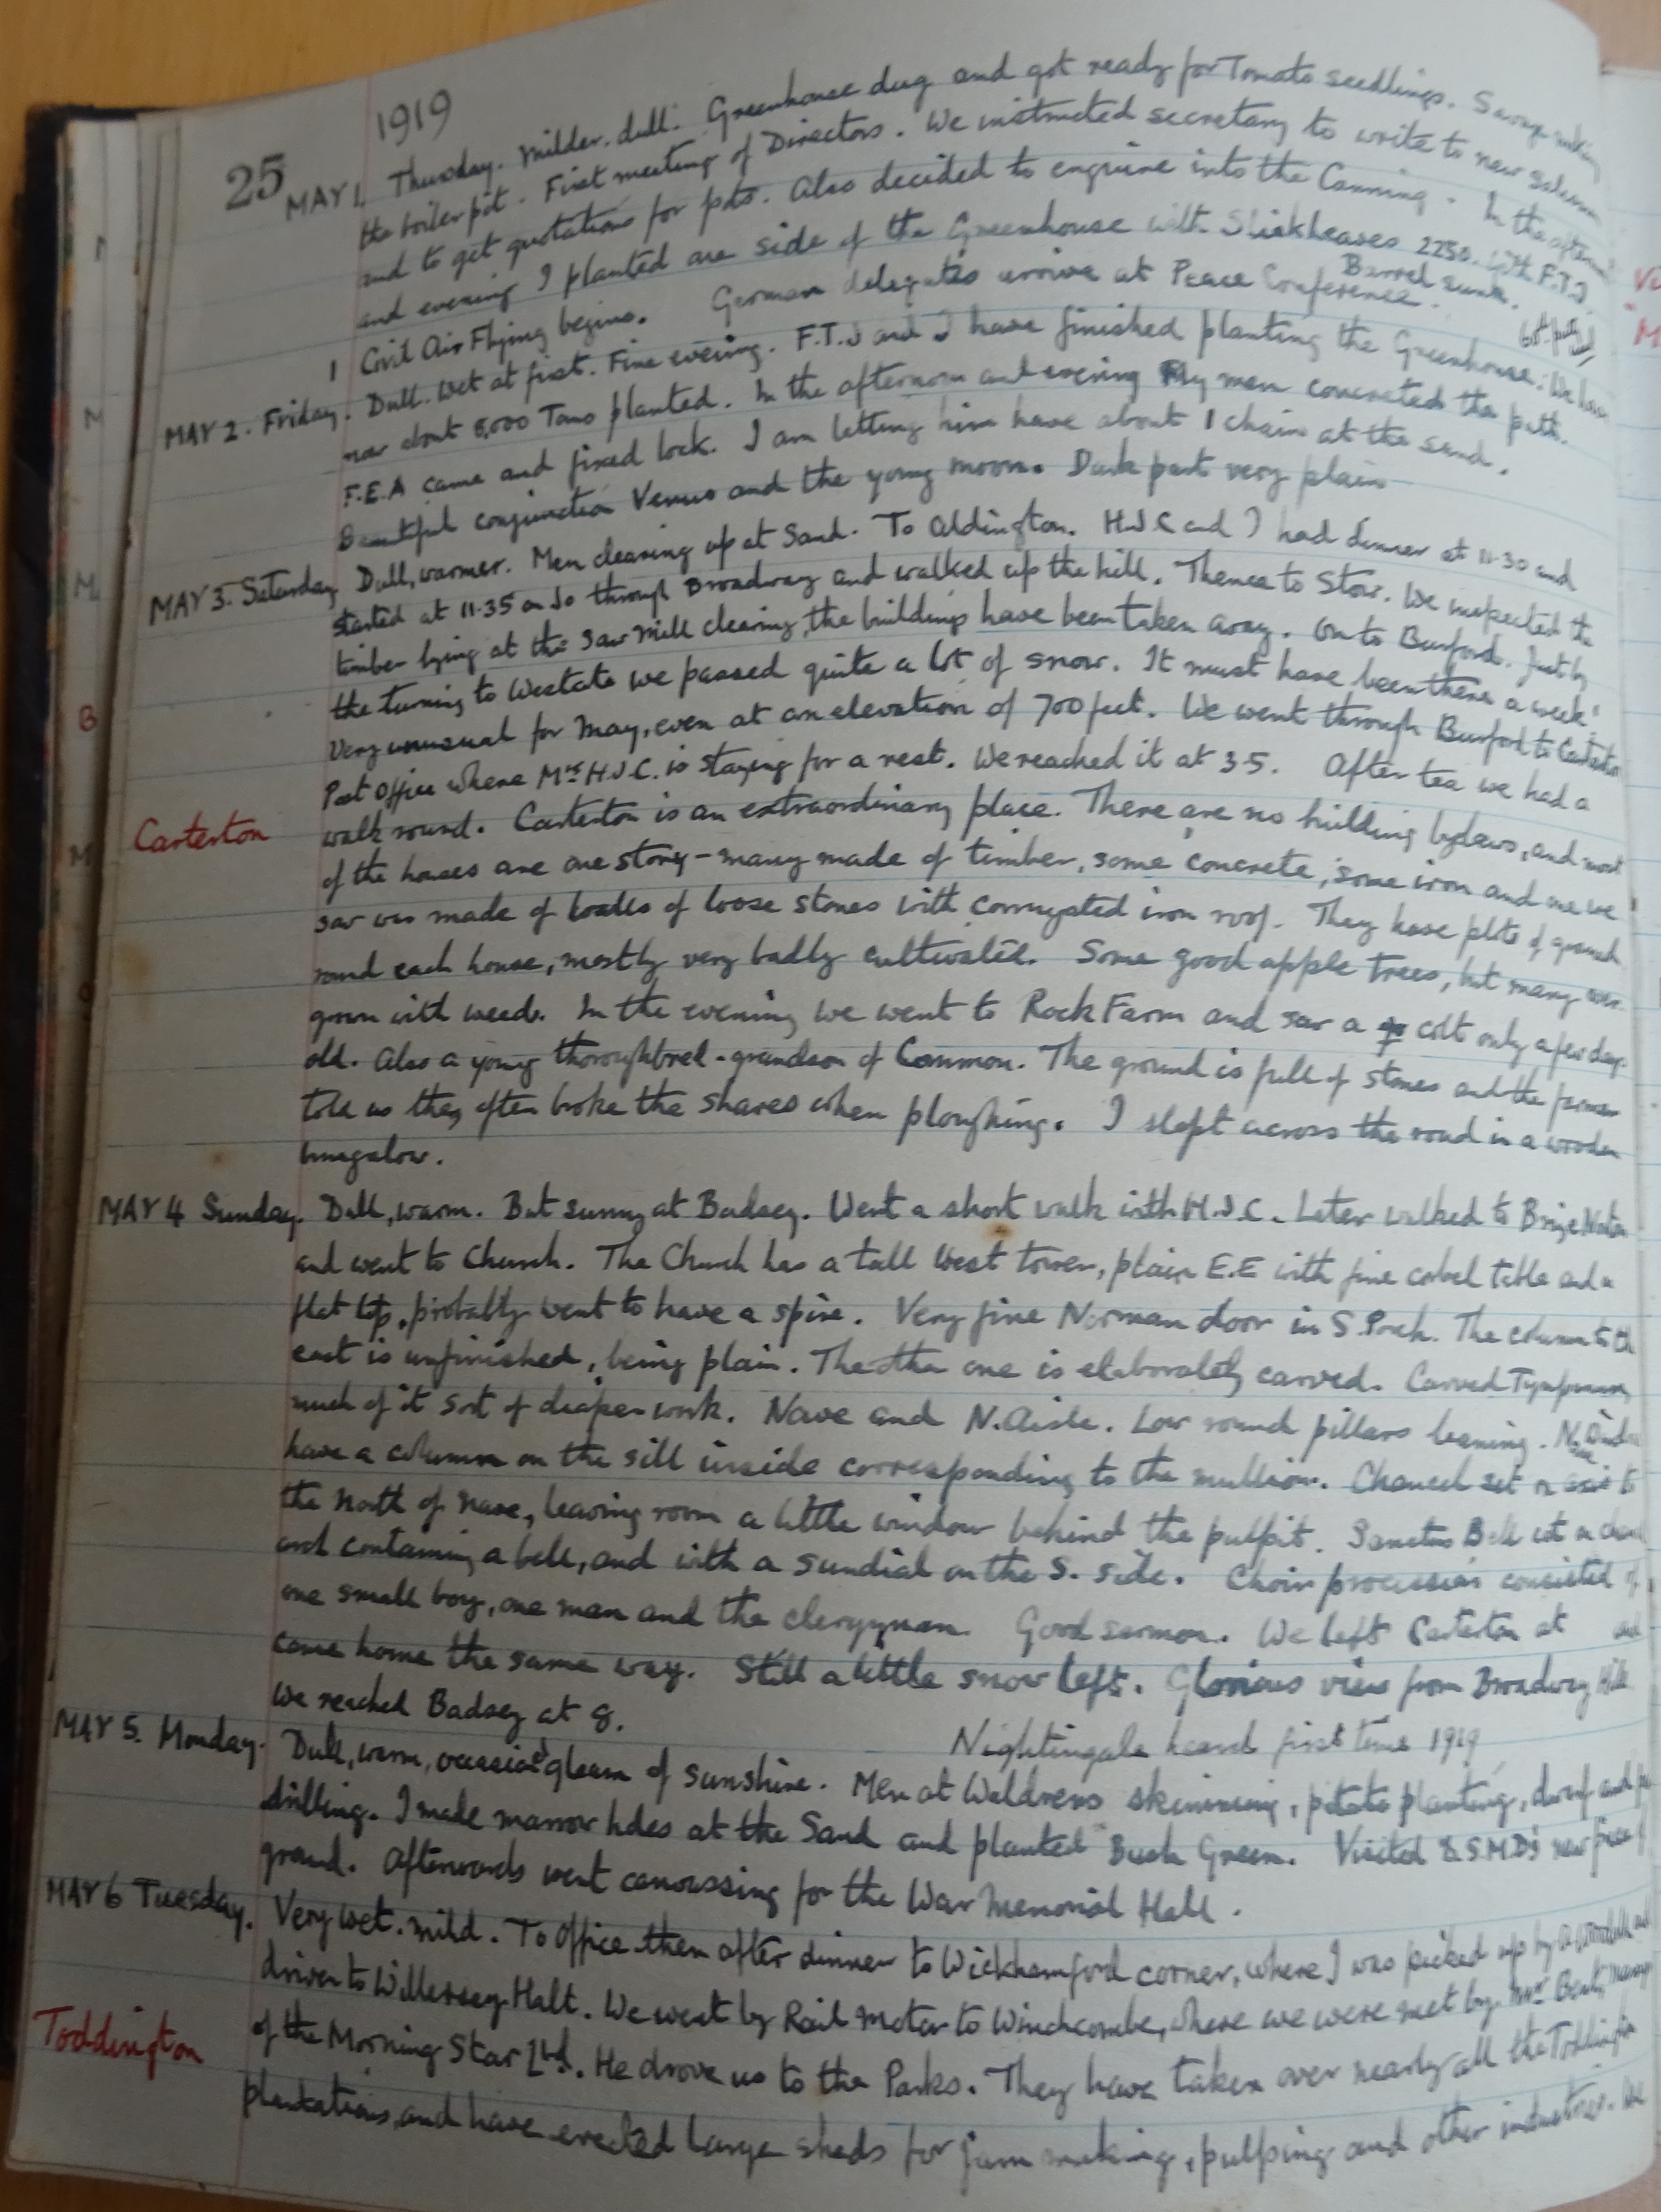 1919
25
MAY 1. Thursday. Milder. dull. Greenhouse dug and got ready for Tomato seedlings. Savage making
the boiler pit. First meeting of Directors. We instructed secretary to write to new
and to get quotations for pots. Also decided to enquire into the Canning. In the afternoon
and evening I planted one side of the Greenhouse with 2250. with F.T.J
Barrel sunk.
1 Civil Air Flying begins. German delegates arrive at Peace Conference.
MAY 2. Friday. Dull. Wet at first. Fine evening. F.T.J and I have finished planting the Greenhouse. We have
now about 5,000 Toms planted. In the afternoon and evening my men concreted the path.
F.E.A came and fixed lock. I am letting him have about 1 chain at the sand.
Beautiful conjunction Venus and the young moon. Dark part very plain
MAY 3. Saturday. Dull, warmer. Men clearing up at Sand. To Aldington. H.J.C and I had dinner at 11.30 and
started at 11.35 or so through Broadway and walked up the hill. Thence to Stow. We inspected the
timber lying at the Saw Mill clearing, the buildings have been taken away. On to Burford. Just by
the turning to Westcote we passed quite a lot of snow. It must have been there a week!
Very unusual for May, even at an elevation of 700 feet. We went through Burford to Carterton
Post Office where Mrs H.J.C. is staying for a rest. We reached it at 3.5. After tea we had a
Carterton
walk round. Carterton is an extraordinary place. There are no building bylaws, and most
of the houses are one story - many made of timber, some concrete, some iron and one we
saw was made of walls of loose stones with corrugated iron roof. They have plots of ground
round each house, mostly very badly cultivated. Some good apple trees, but many over
grown with weeds. In the evening we went to Rock Farm and saw a colt only a few days
old. Also a young thoroughbred - grandson of Common. The ground is full of stones and the farmer
told us they often broke the shares when ploughing. I slept across the road in a wooden
bungalow.
MAY 4 Sunday. Dull, warm. But sunny at Badsey. Went a short walk with H.J.C. Later walked to Brize Norton
and went to Church. The Church has a tall West tower, plain E.E with fine corbel table and a
flat top, probably went to have a spire. Very fine Norman door in S. Porch. The column to the
east is unfinished, being plain. The other one is elaborately carved. Carved Tympanum,
much of it sort of diaper work. Nave and N. Aisle. Low round pillars leaning. N.
have a column on the sill inside corresponding to the mullion. Chancel set on axis to
the North of nave, leaving room a little window behind the pulpit. Sanctus Bell cot on chancel
arch containing a bell, and with a sundial on the S. side. Choir procession consisted of
one small boy, one man and the clergyman. Good sermon. We left Carterton at and
came home the same way. Still a little snow left. Glorious view from Broadway Hill
We reached Badsey at 8.
Nightingale heard first time 1919
MAY 5. Monday. Dull, warm, occasional gleam of sunshine. Men at Waldrens skimming, potato planting, dwarf and
drilling. I made marrow holes at the Sand and planted Bush Green. Visited new piece of
ground. Afterwards went canvassing for the War Memorial Hall.
MAY 6 Tuesday. Very wet. mild. To Office then after dinner to Wickhamford corner, where I was picked up by and
driven to Willersey Halt. We went by Rail Motor to Winchcombe, where we were met by Mr
Toddington
of the Morning Star Ltd. He drove us to the Parks. They have taken over nearly all the Toddington
plantations, and have erected large sheds for jam making, pulping and other industries. We